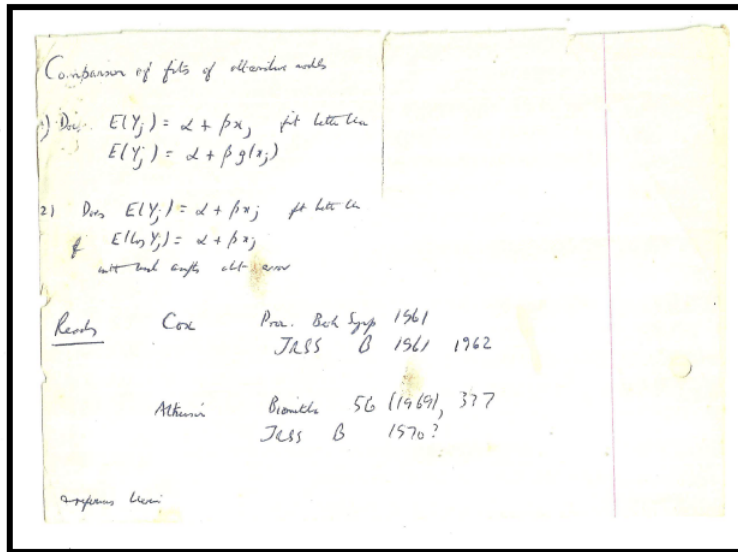 Comparison of fits of alternative models
1) Does E(Y_j) = α + βx_j fit better than
E(Y_j) = α + β g(x_j)
2) Does E(Y_j) = α + βx_j fit better than
E(log Y_j) = α + βx_j
with usual about error
Reads Cox Proc. Berk Symp 1961
JRSS B 1961 1962
Atkinson Biometrika 56 (1969), 337
JRSS B 1970?
+ references therein